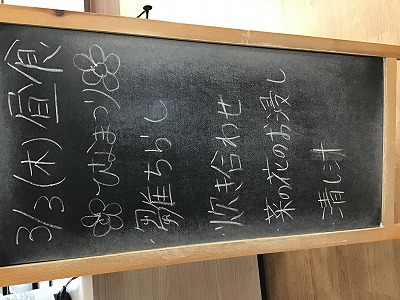 3/3(木)昼食
ひなまつり
雛ちらし
炊き合わせ
菜の花のお浸し
清し汁